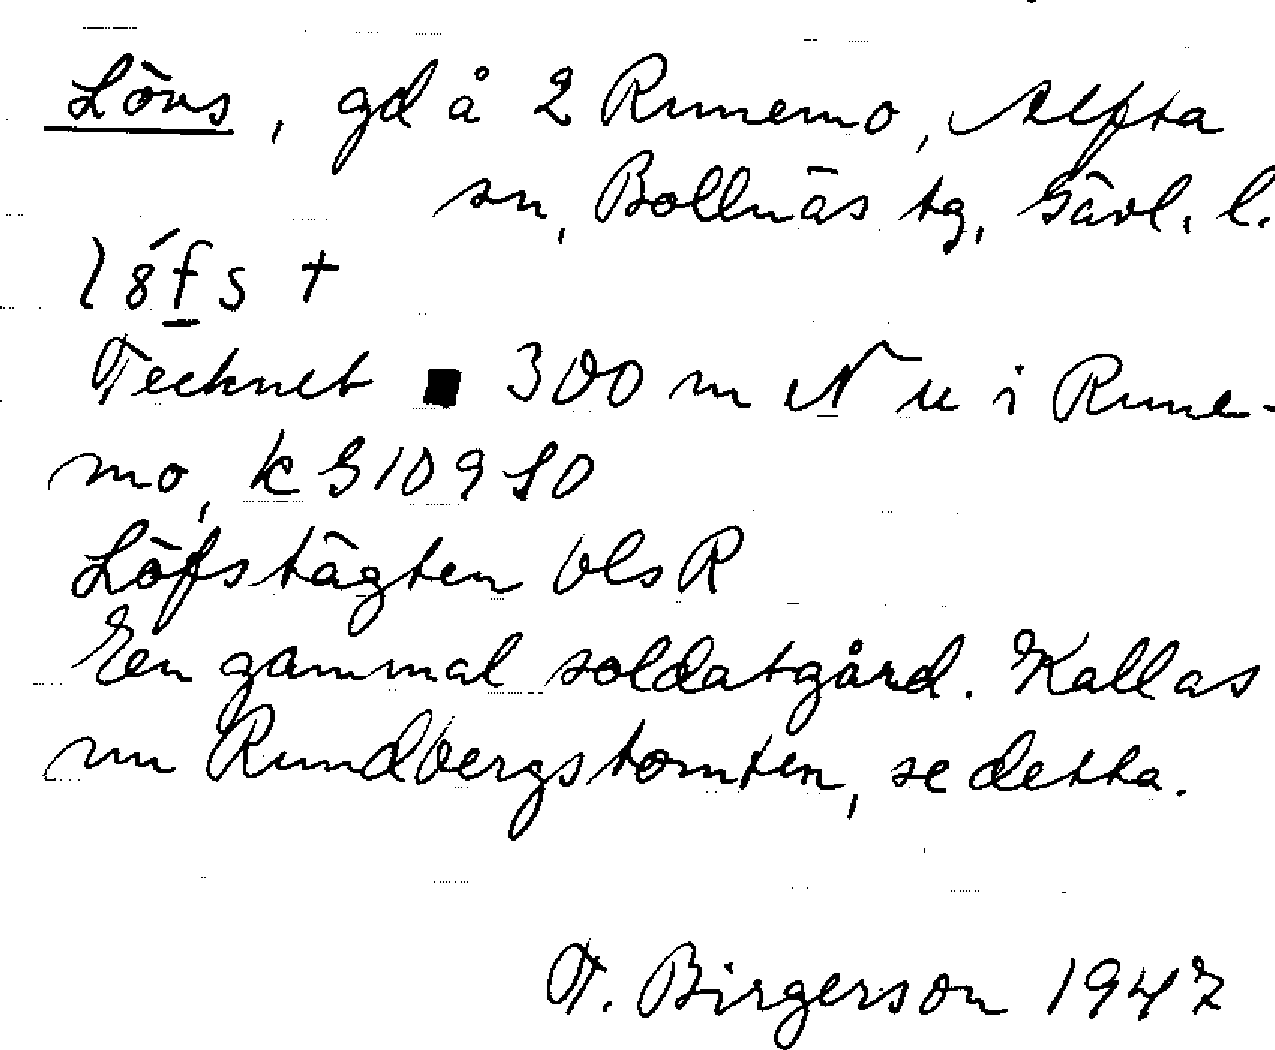 Lövs, gd å 2 Runemo, Alfta
sn, Bollnäs tg, Gävl. l.
l8́fs †
Tecknet ■ 300 m N u i Rune-
mo, k 310950
Löfstägten vls R
En gammal soldatgård. Kallas
nu Rundbergstomten, se detta.
T. Birgerson 1947